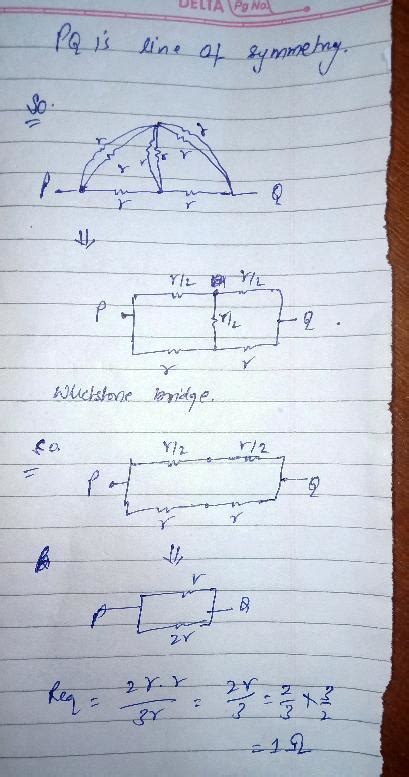 DELTA Pg No.
PQ is line of symmetry.
So.
r r
r r r r
P r r Q
⇓
r/2 r/2
P r/2 Q .
r r
Wheatstone bridge.
So.
r/2 r/2
P Q
r r
⇓
r
P Q
2r
Req = 2r.r/3r = 2r/3 = 2/3 × 3/2
= 1Ω